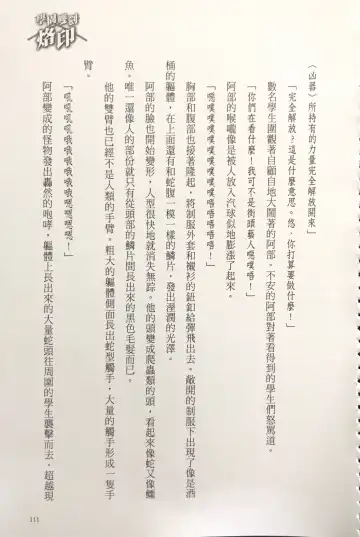 學園聖剣
烙印
〈凶器〉所持有的力量完全解放開來」
「完全解放？這是什麼意思。悠，你打算要做什麼！」
數名學生圍觀著自顧自地大鬧著的阿部。不安的阿部對著看得到的學生們怒罵道。
「你們在看什麼！我可不是街頭藝人嗯噗唔！」
阿部的喉嚨像是被人放入汽球似地膨漲了起來。
「嗯噗噗噗噗噗噗噗噗噗唔唔唔唔！」
胸部和腹部也接著隆起，將制服外套和襯衫的鈕釦給彈飛出去。敞開的制服下出現了像是酒
桶的軀體，在上面還有和蛇腹一模一樣的鱗片，發出溼潤的光澤。
阿部的臉也開始變形，人型很快地就消失無踪。他的頭變成爬蟲類的頭，看起來像蛇又像鱷
魚。唯一還像人的部份就只有從頭部的鱗片間長出來的黑色毛髮而已。
他的雙臂也已經不是人類的手臂。粗大的軀體側面長出蛇型觸手，大量的觸手形成一隻手
臂。
阿部變成的怪物發出轟然的咆哮，軀體上長出來的大量蛇頭往周圍的學生襲擊而去，超越現
111